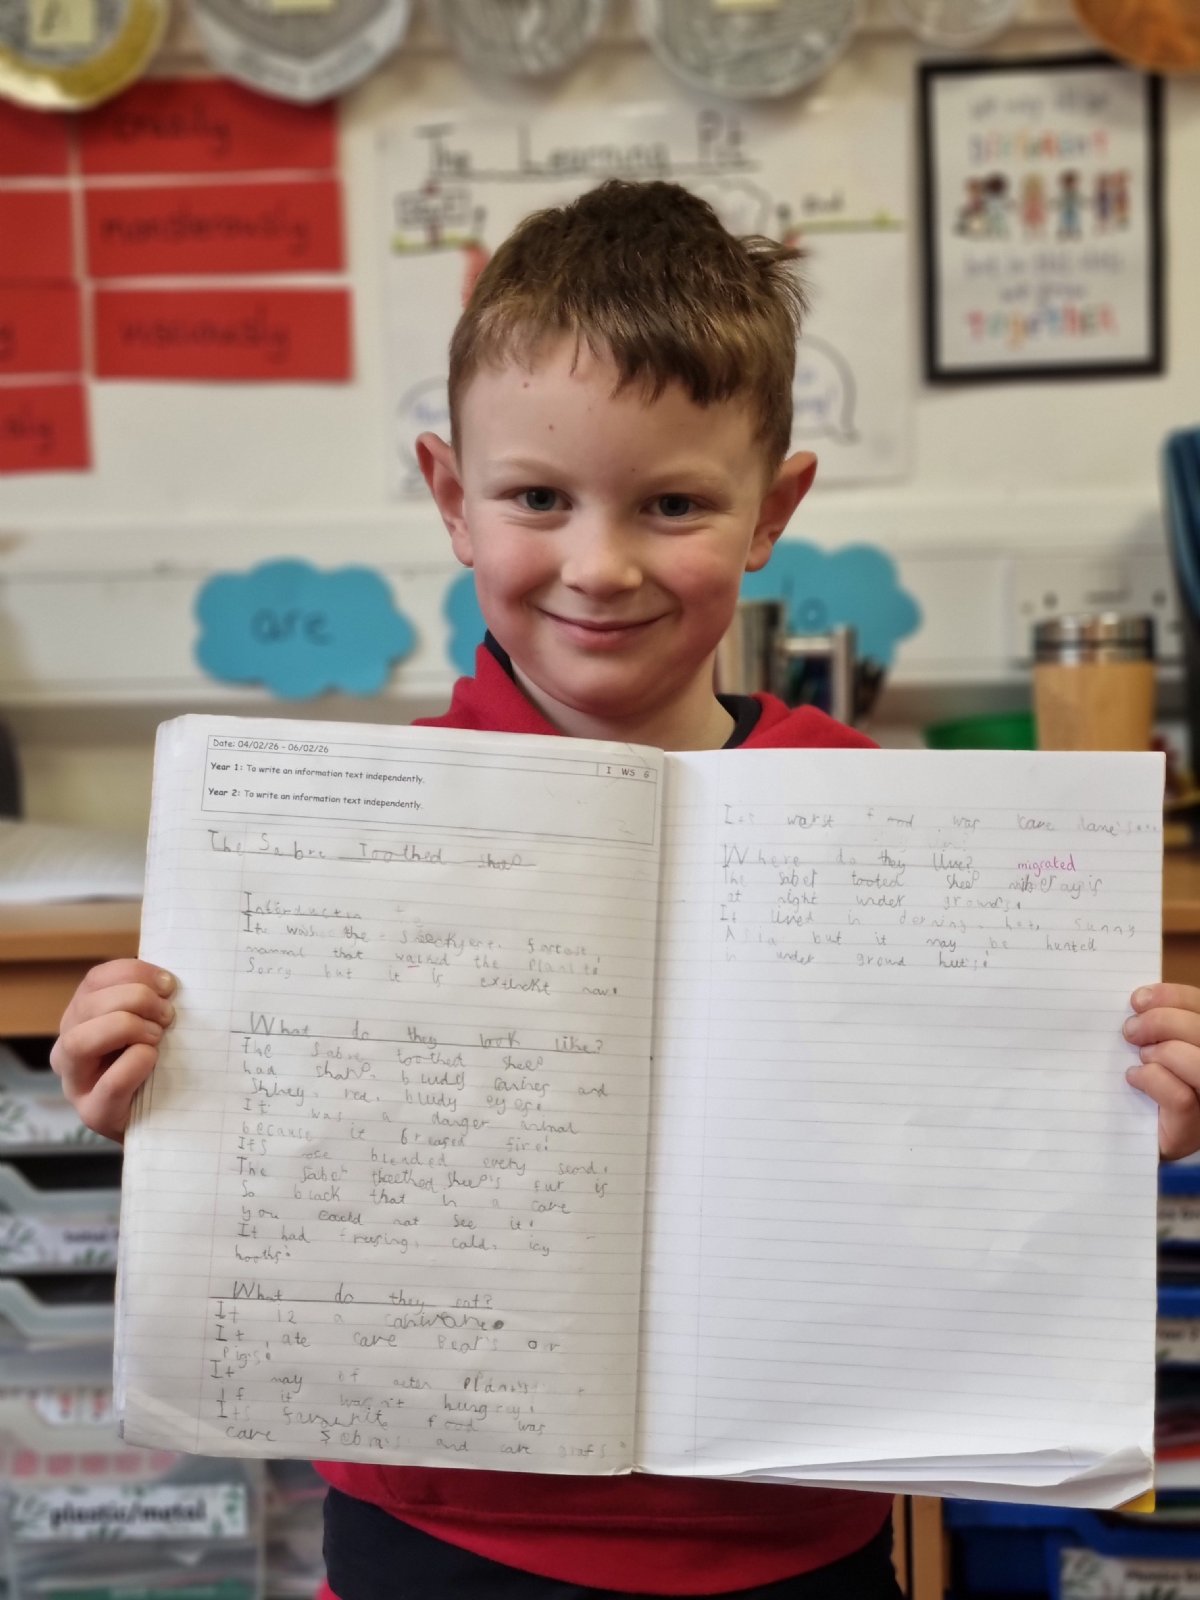 The Learning Pit
End
monsterously
viciously
are
Date: 04/02/26 - 06/02/26
I WS G
Year 1: To write an information text independently.
Year 2: To write an information text independently.
The Sabre Toothed sheep
Interductin
It was the
mammal that walked the planit!
Sorry but it is extinckt now!
What do they look like?
The Sabre toothed sheep
had sharp, bludy canines and
Shiney, red, bludy eyes!
It was a danger animal
because it breased fire!
Its nose blended every secnd.
The Saber theethed sheep's fur is
So black that in a cave
you could not see it!
It had freusing, cald, icy
hooths!
What do they eat?
It is a
It ate cave Bear's or
Pig's!
It may of aten Plants
If it wasn't hungrey!
Its favourite food was
cave Sebra's and cave
Its worst food was cave
Where do they live? migrated
The saber tooted sheep
at night under grownd!
It lived in hot, sunny
Asia but it may be hunted
in under ground huts!
plastic/metal